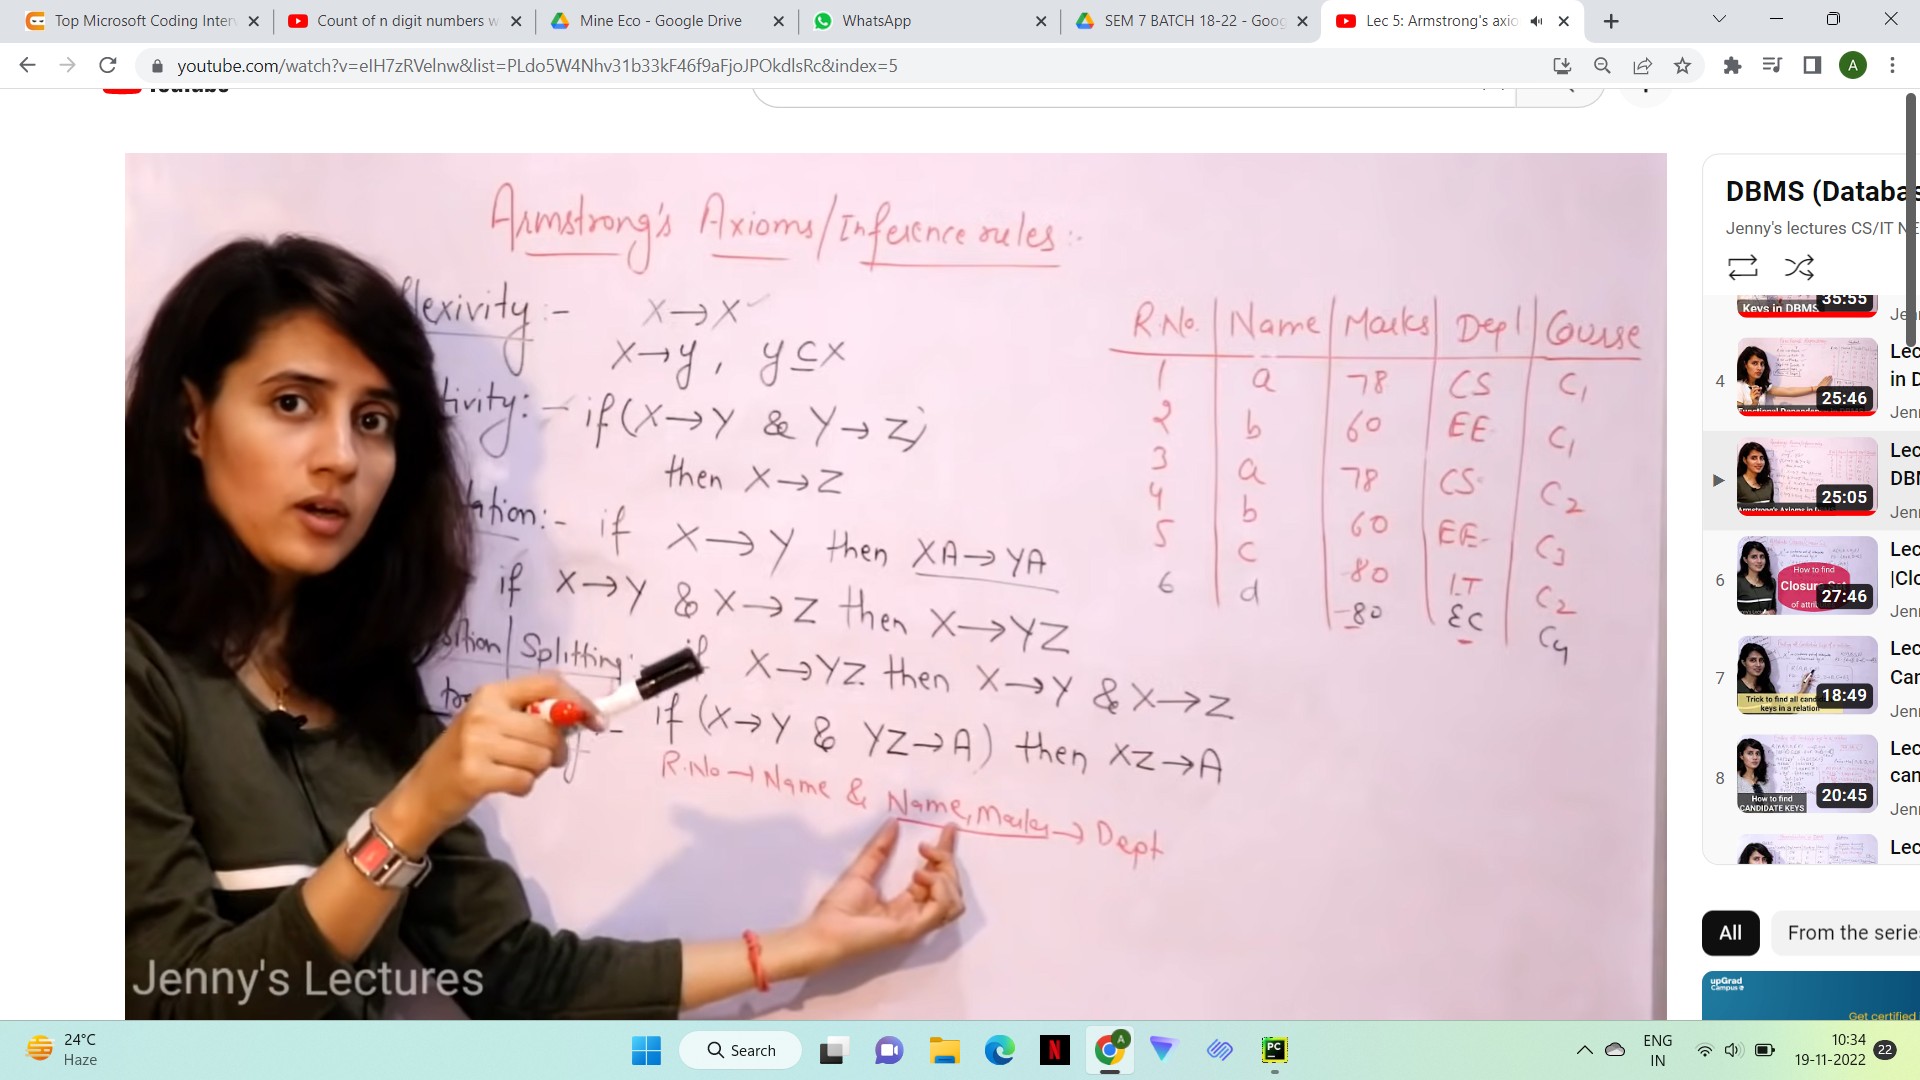 Top Microsoft Coding Inter
Count of n digit numbers w
Mine Eco - Google Drive
WhatsApp
SEM 7 BATCH 18-22 - Goog
Lec 5: Armstrong's axio
youtube.com/watch?v=eIH7zRVelnw&list=PLdo5W4Nhv31b33kF46f9aFjoJPOkdlsRc&index=5
A
Armstrong's Axioms/Inference rules:-
flexivity:- X→X
X→y, y⊆x
tivity:- if(X→Y & Y→Z)
then X→Z
tation:- if X→Y then XA→YA
if X→Y & X→Z then X→YZ
sition/Splitting:- if X→YZ then X→Y & X→Z
if (X→Y & YZ→A) then XZ→A
R.No→Name & Name, Marks→Dept
R.No. Name Marks Dept Course
1 a 78 CS C1
2 b 60 EE C1
3 a 78 CS C2
4 b 60 EE C3
5 c 80 IT C2
6 d 80 EC C4
Jenny's Lectures
DBMS (Databas
Jenny's lectures CS/IT NE
Keys in DBMS
35:55
4
25:46
Lec
in D
Jenn
25:05
Lec
DBM
Jenn
6
How to find
Closure Set
of attri
27:46
Lec
|Clo
Jenn
7
Trick to find all candi
keys in a relation
18:49
Lec
Can
Jenn
8
How to find
CANDIDATE KEYS
20:45
Lec
can
Jenn
Lec
All
From the serie
upGrad
Campus
Get certified i
24°C
Haze
Search
ENG
IN
10:34
19-11-2022
22